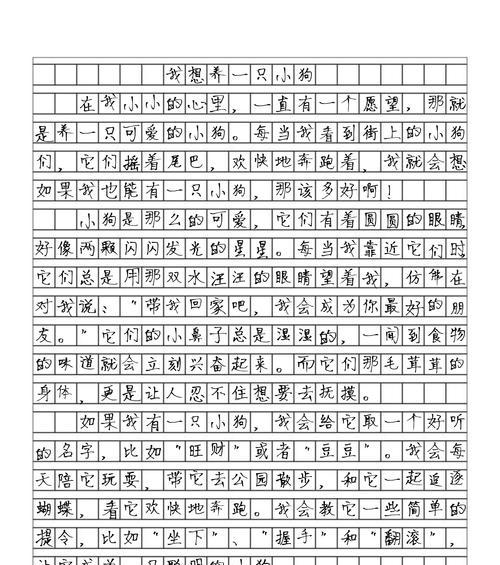 我想养一只小狗
在我小小的心里，一直有一个愿望，那就
是养一只可爱的小狗。每当我看到街上的小狗
们，它们摇着尾巴，欢快地奔跑着，我就会想
如果我也能有一只小狗，那该多好啊！
小狗是那么的可爱，它们有着圆圆的眼睛
好像两颗闪闪发光的星星。每当我靠近它们时
它们总是用那双水汪汪的眼睛望着我，仿佛在
对我说：“带我回家吧，我会成为你最好的朋
友。”它们的小鼻子总是湿湿的，一闻到食物
的味道就会立刻兴奋起来。而它们那毛茸茸的
身体，更是让人忍不住想要去抚摸。
如果我有一只小狗，我会给它取一个好听
的名字，比如“旺财”或者“豆豆”。我会每
天陪它玩耍，带它去公园散步，和它一起追逐
蝴蝶，看它欢快地奔跑。我会教它一些简单的
提令，比如“坐下”、“握手”和“翻滚”，